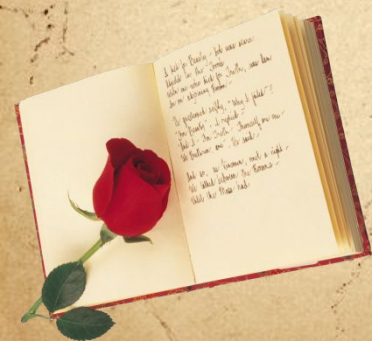 I died for Beauty - but was scarce
in the Tomb
When one who died for Truth, was lain
In an adjoining Room -
He questioned softly, "Why I failed"?
"For Beauty", I replied -
"And I - for Truth - Themself are One -
We Brethren, are", He said -
And so, as Kinsmen, met a night -
We talked between the Rooms -
Until the Moss had